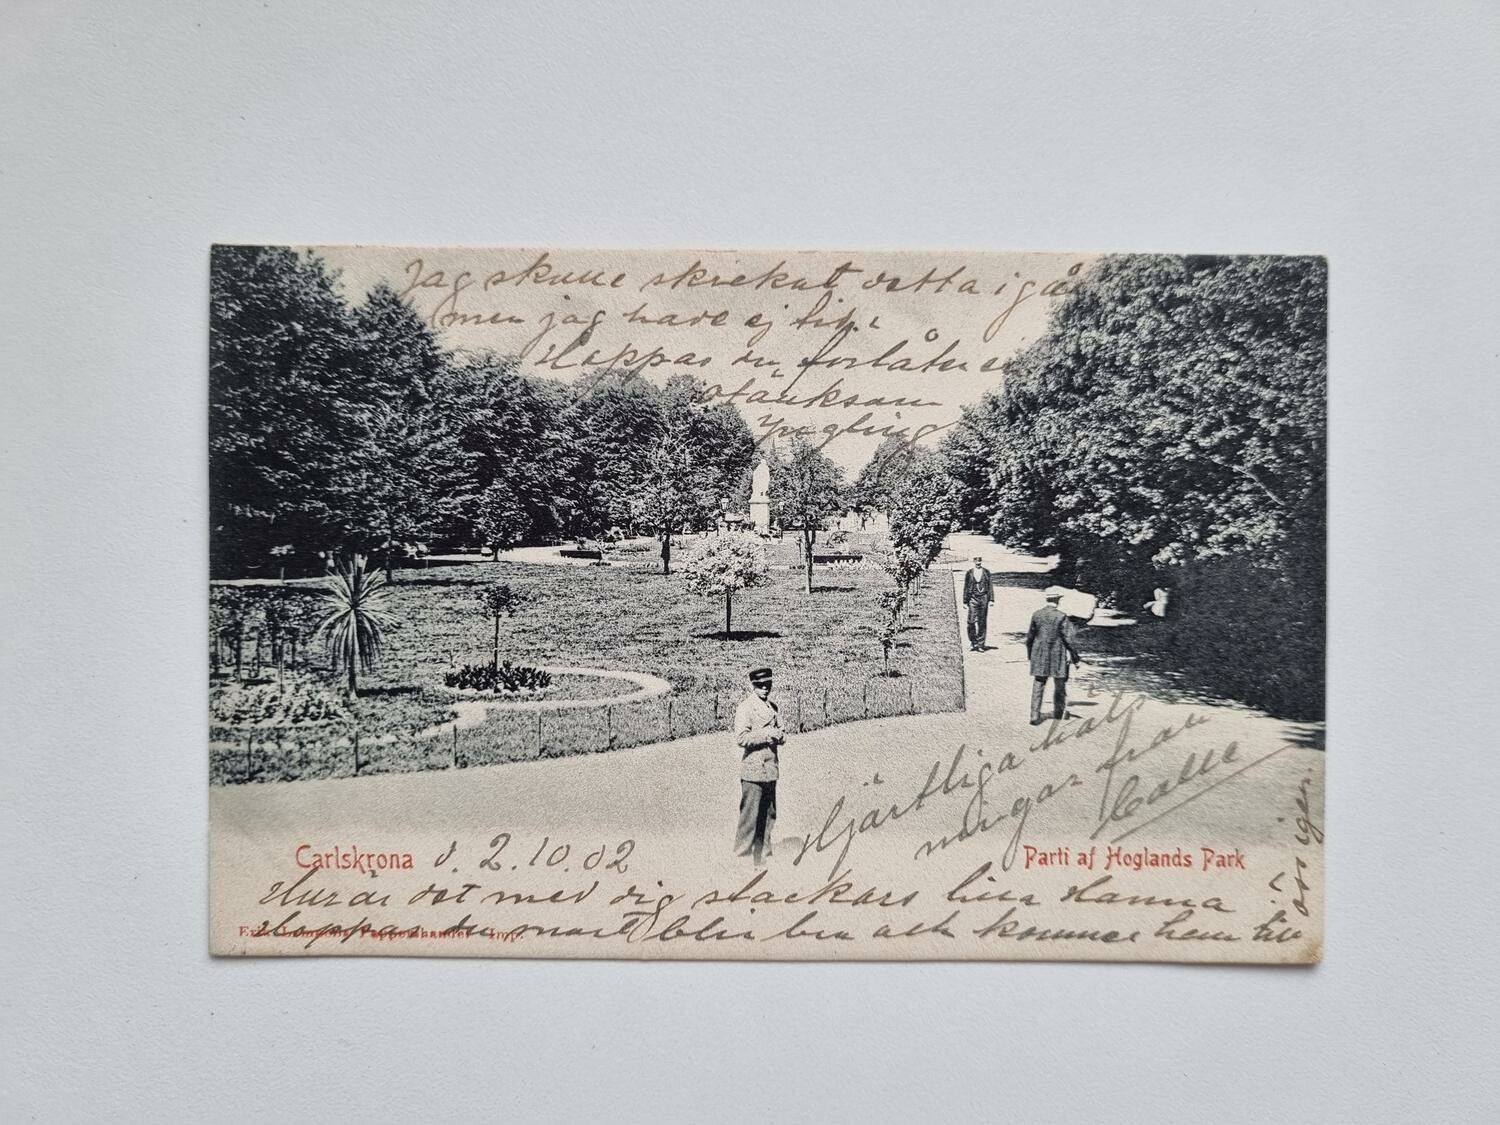 Jag skulle skickat detta i går
men jag hade ej tid.
Hoppas du förlåter en
otänksam
Yngling
Hjärtliga häls
ningar från
Calle
Carlskrona d. 2.10.02
Parti af Hoglands Park
Hur är det med dig stackars lilla Hanna?
Hoppas du snart blir bra och kommer hem till
oss igen.
Pappershandel Imp.